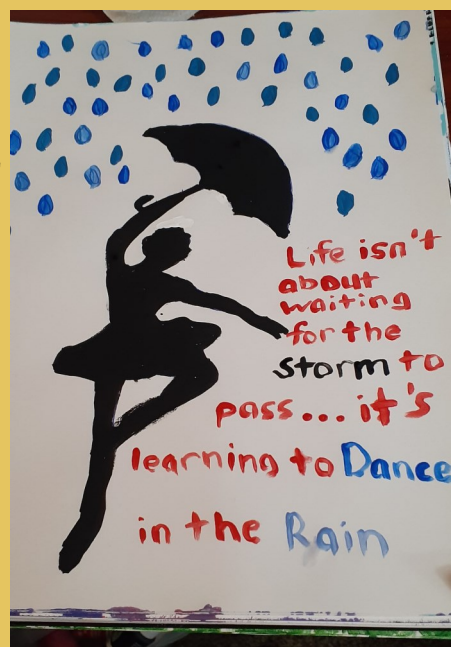 Life isn't
about
waiting
for the
storm to
pass... it's
learning to Dance
in the Rain